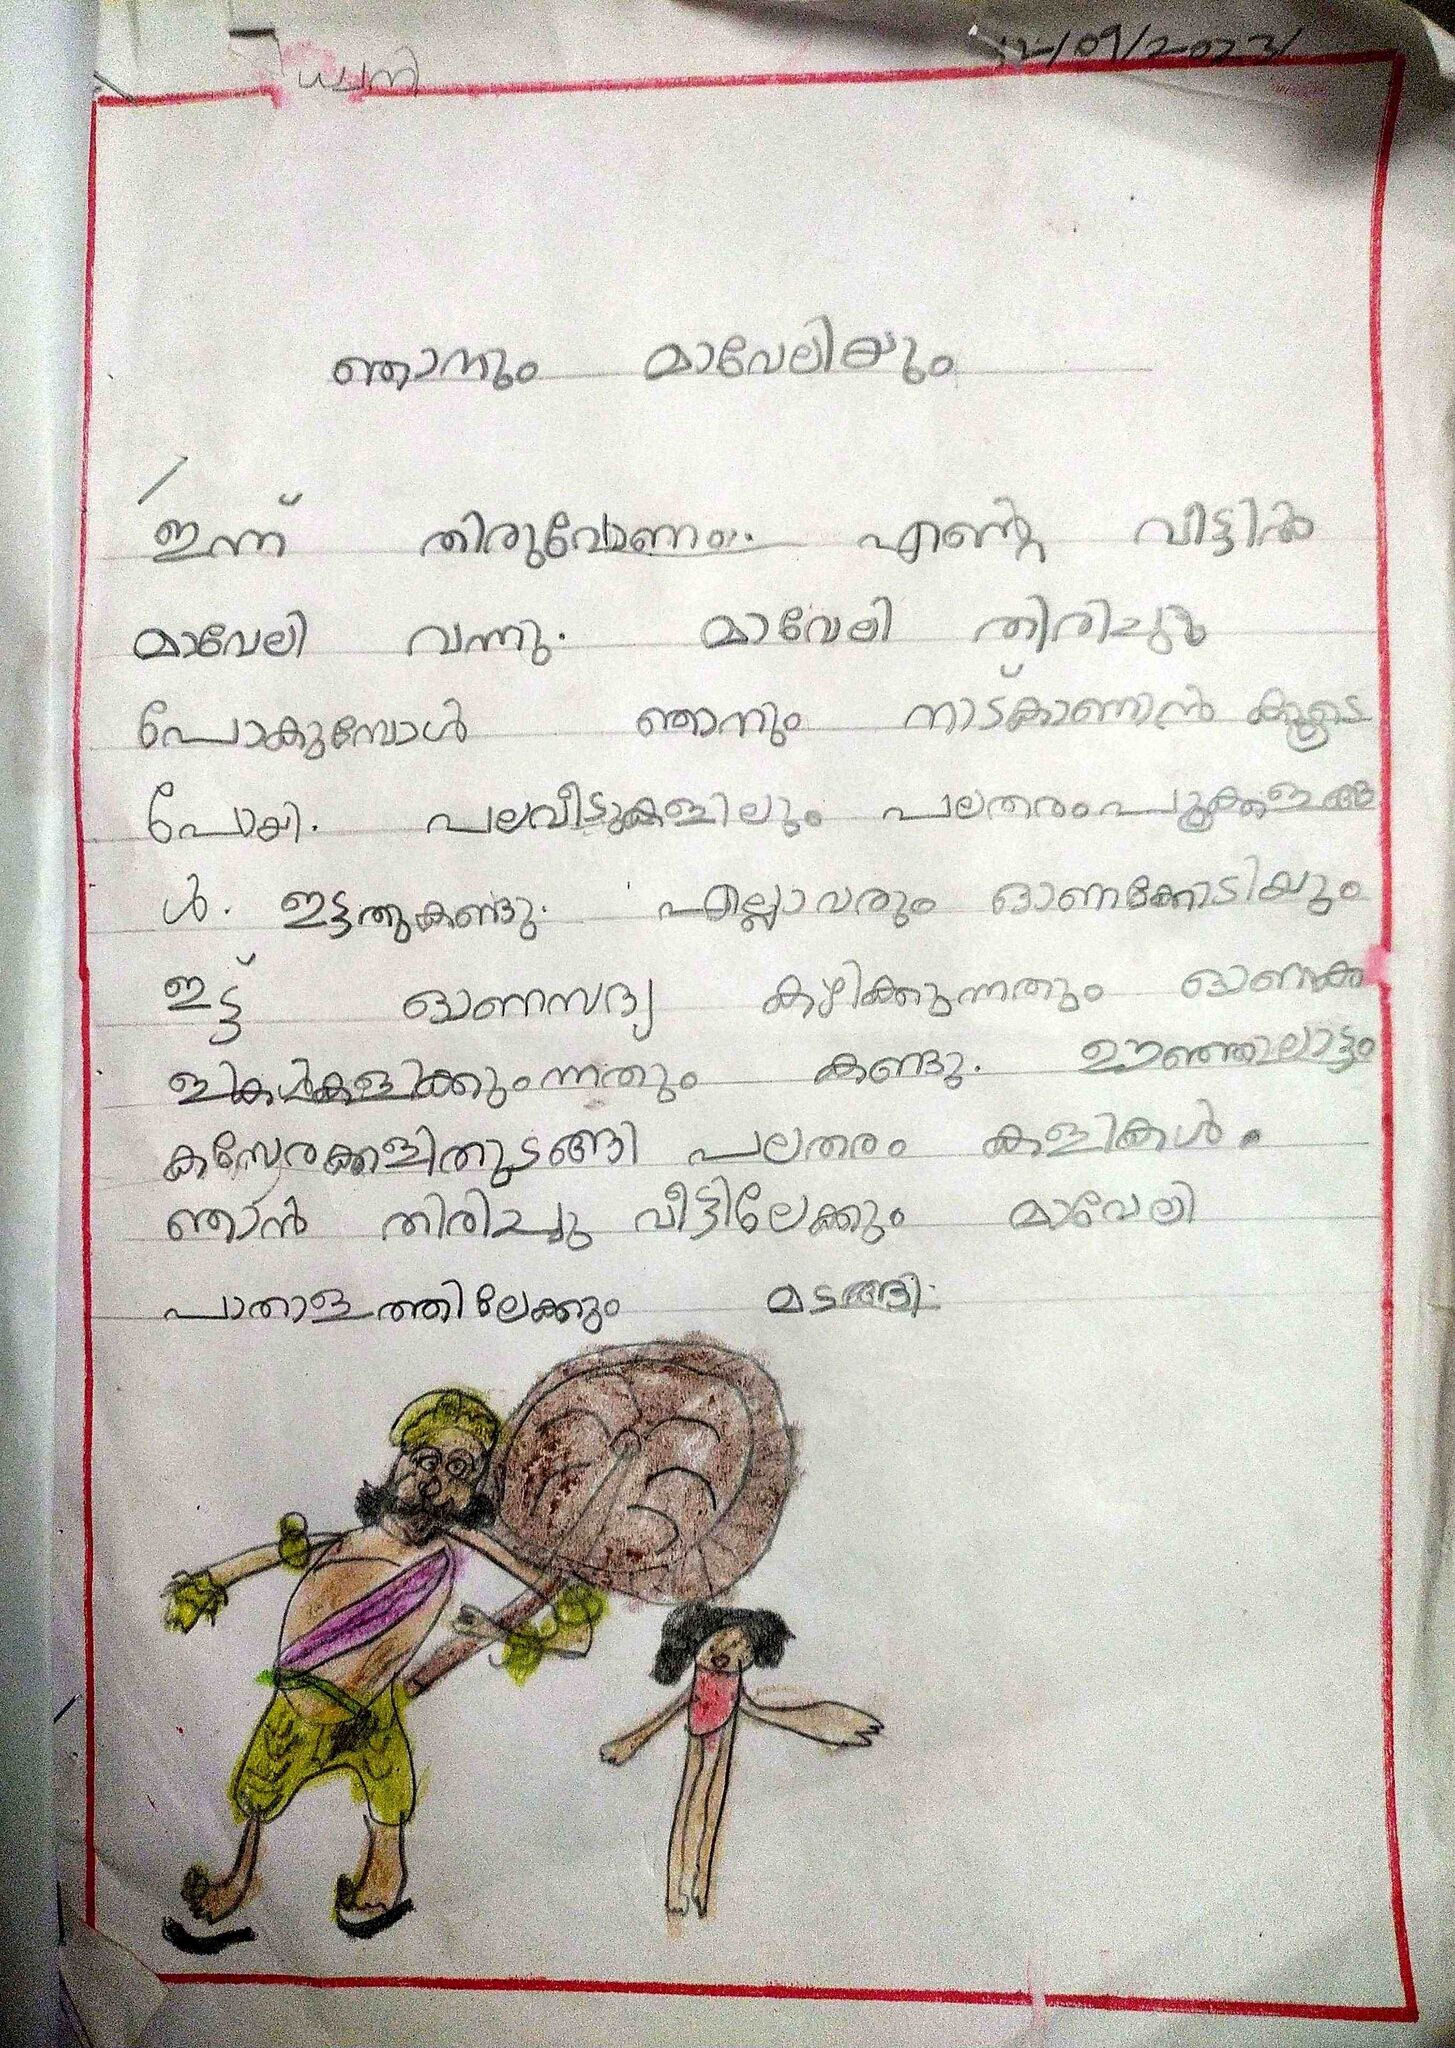 12/09/2023
ഞാനും മാവേലിയും
ഇന്ന് തിരുവോണം. എന്റെ വീട്ടിൽ
മാവേലി വന്നു. മാവേലി തിരിച്ചു
പോകുമ്പോൾ ഞാനും നാട്കാണാൻ കൂടെ
പോയി. പലവീടുകളിലും പലതരം പൂക്കളങ്ങ
ൾ. ഇട്ടതുകണ്ടു. എല്ലാവരും ഓണക്കോടിയും
ഇട്ട് ഓണസദ്യ കഴിക്കുന്നതും ഓണക്ക
ളികൾകളിക്കുംന്നതും കണ്ടു. ഊഞ്ഞാലാട്ടം
കസേരക്കളിതുടങ്ങി പലതരം കളികൾ.
ഞാൻ തിരിച്ചു വീട്ടിലേക്കും മാവേലി
പാതാളത്തിലേക്കും മടങ്ങി.